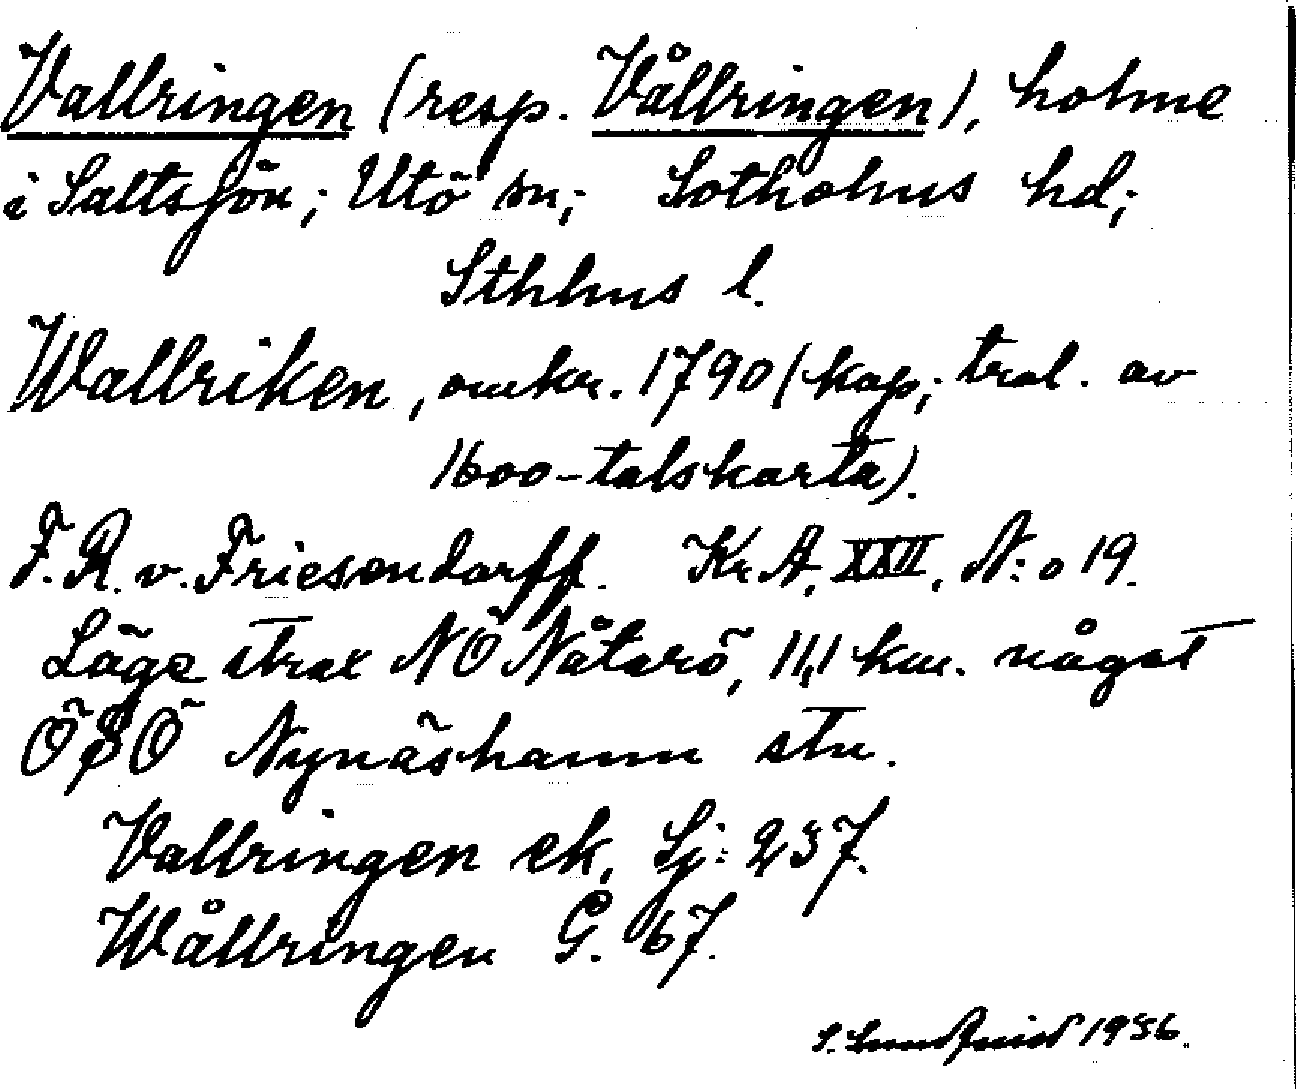 Vallringen (resp. Vållringen), holme
i Saltsjön; Utö sn; Sotholms hd;
Sthlms l.
Wallriken, omkr. 1790 (kop; tral. av
1600-talskarta).
F. R. v. Friesendorff. Kr. A, XXII, N:o 19.
Läge strax NÖ Nåtarö, 11,1 km. något
ÖSÖ Nynäshamn stn.
Vallringen ek. Sj: 237.
Wållringen G. 67.
S. Lundquist 1936.